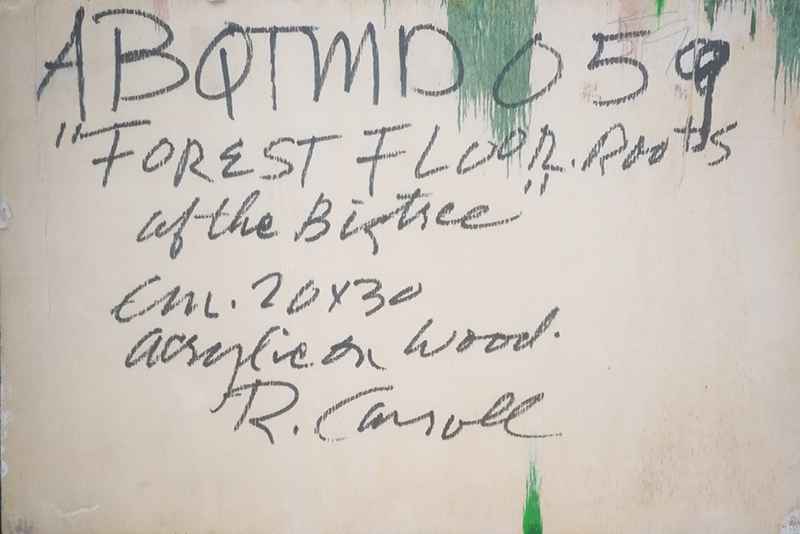 ABQTMD 059
"FOREST FLOOR. Roots
of the Bigtree"
Cm. 20x30
Acrylic on Wood.
R. Carroll